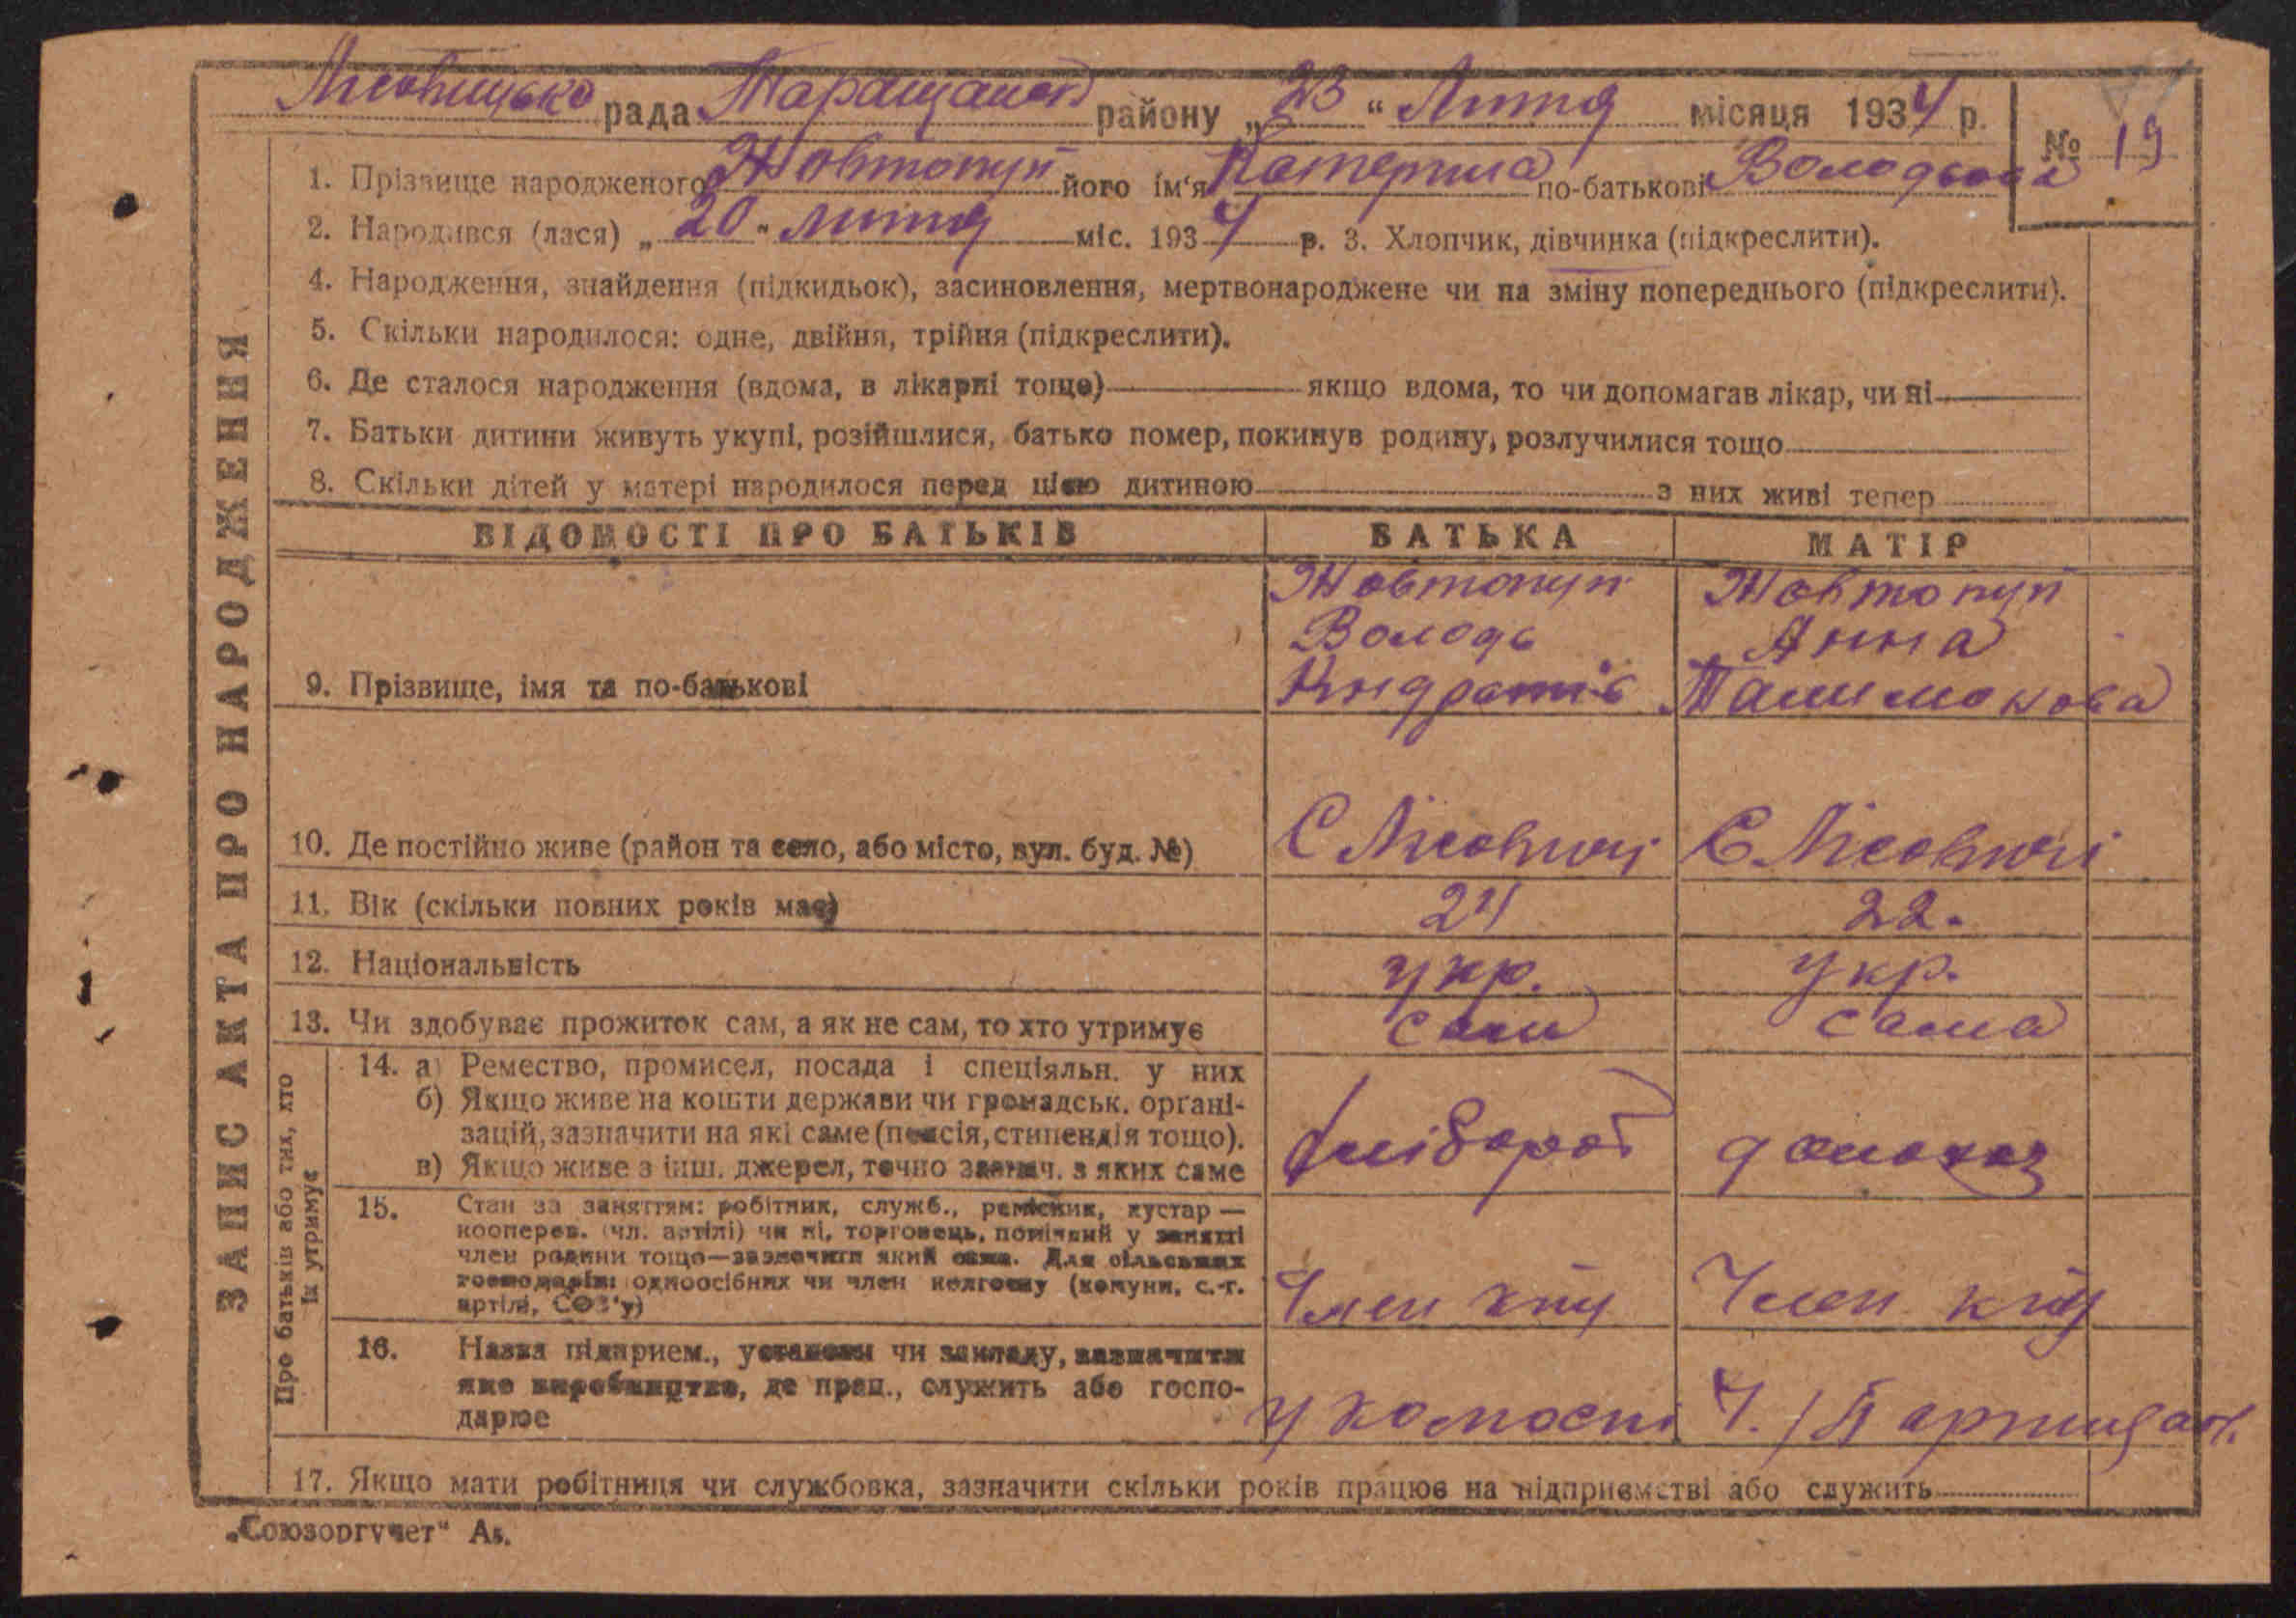 Лісовицько рада Таращанськ району „ 23 “ Лютд місяця 1934 р.
№ 19
1. Прізвище народженого Жовтопуп його ім‘я Катерина по-батькові Володьова
2. Народився (лася) „ 20 “ лютд міс. 1934 р. 3. Хлопчик, дівчинка (підкреслити).
4. Народження, знайдення (підкидьок), засиновлення, мертвонароджене чи на зміну попереднього (підкреслити).
5. Скільки народилося: одне, двійня, трійня (підкреслити).
6. Де сталося народження (вдома, в лікарні тоще) якщо вдома, то чи допомагав лікар, чи ні
7. Батьки дитини живуть укупі, розійшлися, батько помер, покинув родину, розлучилися тощо
8. Скільки дітей у матері народилося перед цією дитиною з них живі тепер
ЗАПИС АКТА ПРО НАРОДЖЕННЯ
ВІДОМОСТІ ПРО БАТЬКІВ БАТЬКА МАТІР
Жовтопуп Жовтопуп
Володь Анна
9. Прізвище, імя та по-батькові Кндратів
10. Де постійно живе (район та село, або місто, вул. буд. №) С Лісовичі С Лісовичі
11. Вік (скільки повних років має) 24 22.
12. Національність укр. укр.
13. Чи здобуває прожиток сам, а як не сам, то хто утримує сам сама
Про батьків або тих, хто
їх утримує
14. а) Ремество, промисел, посада і спеціяльн. у них
б) Якщо живе на кошти держави чи громадськ. органі-
зацій, зазначити на які саме (пенсія, стипендія тощо).
в) Якщо живе з інш. джерел, точно зазнач. з яких саме
хлібороб домохоз
15. Стан за заняттям: робітник, служб., ремісник, кустар —
кооперов. (чл. артілі) чи ні, торговець, помічний у занятті
член родини тощо—зазначити який саме. Для сільських
господарів: одноосібних чи член колгоспу (комуни, с.-г.
артілі, СОЗ‘у)
Член Член
16. Назва підприєм., установи чи закладу, зазначити
яке виробництво, де прац., служить або госпо-
дарює
у
17. Якщо мати робітниця чи службовка, зазначити скільки років працює на підприємстві або служить
„Союзоргучет“